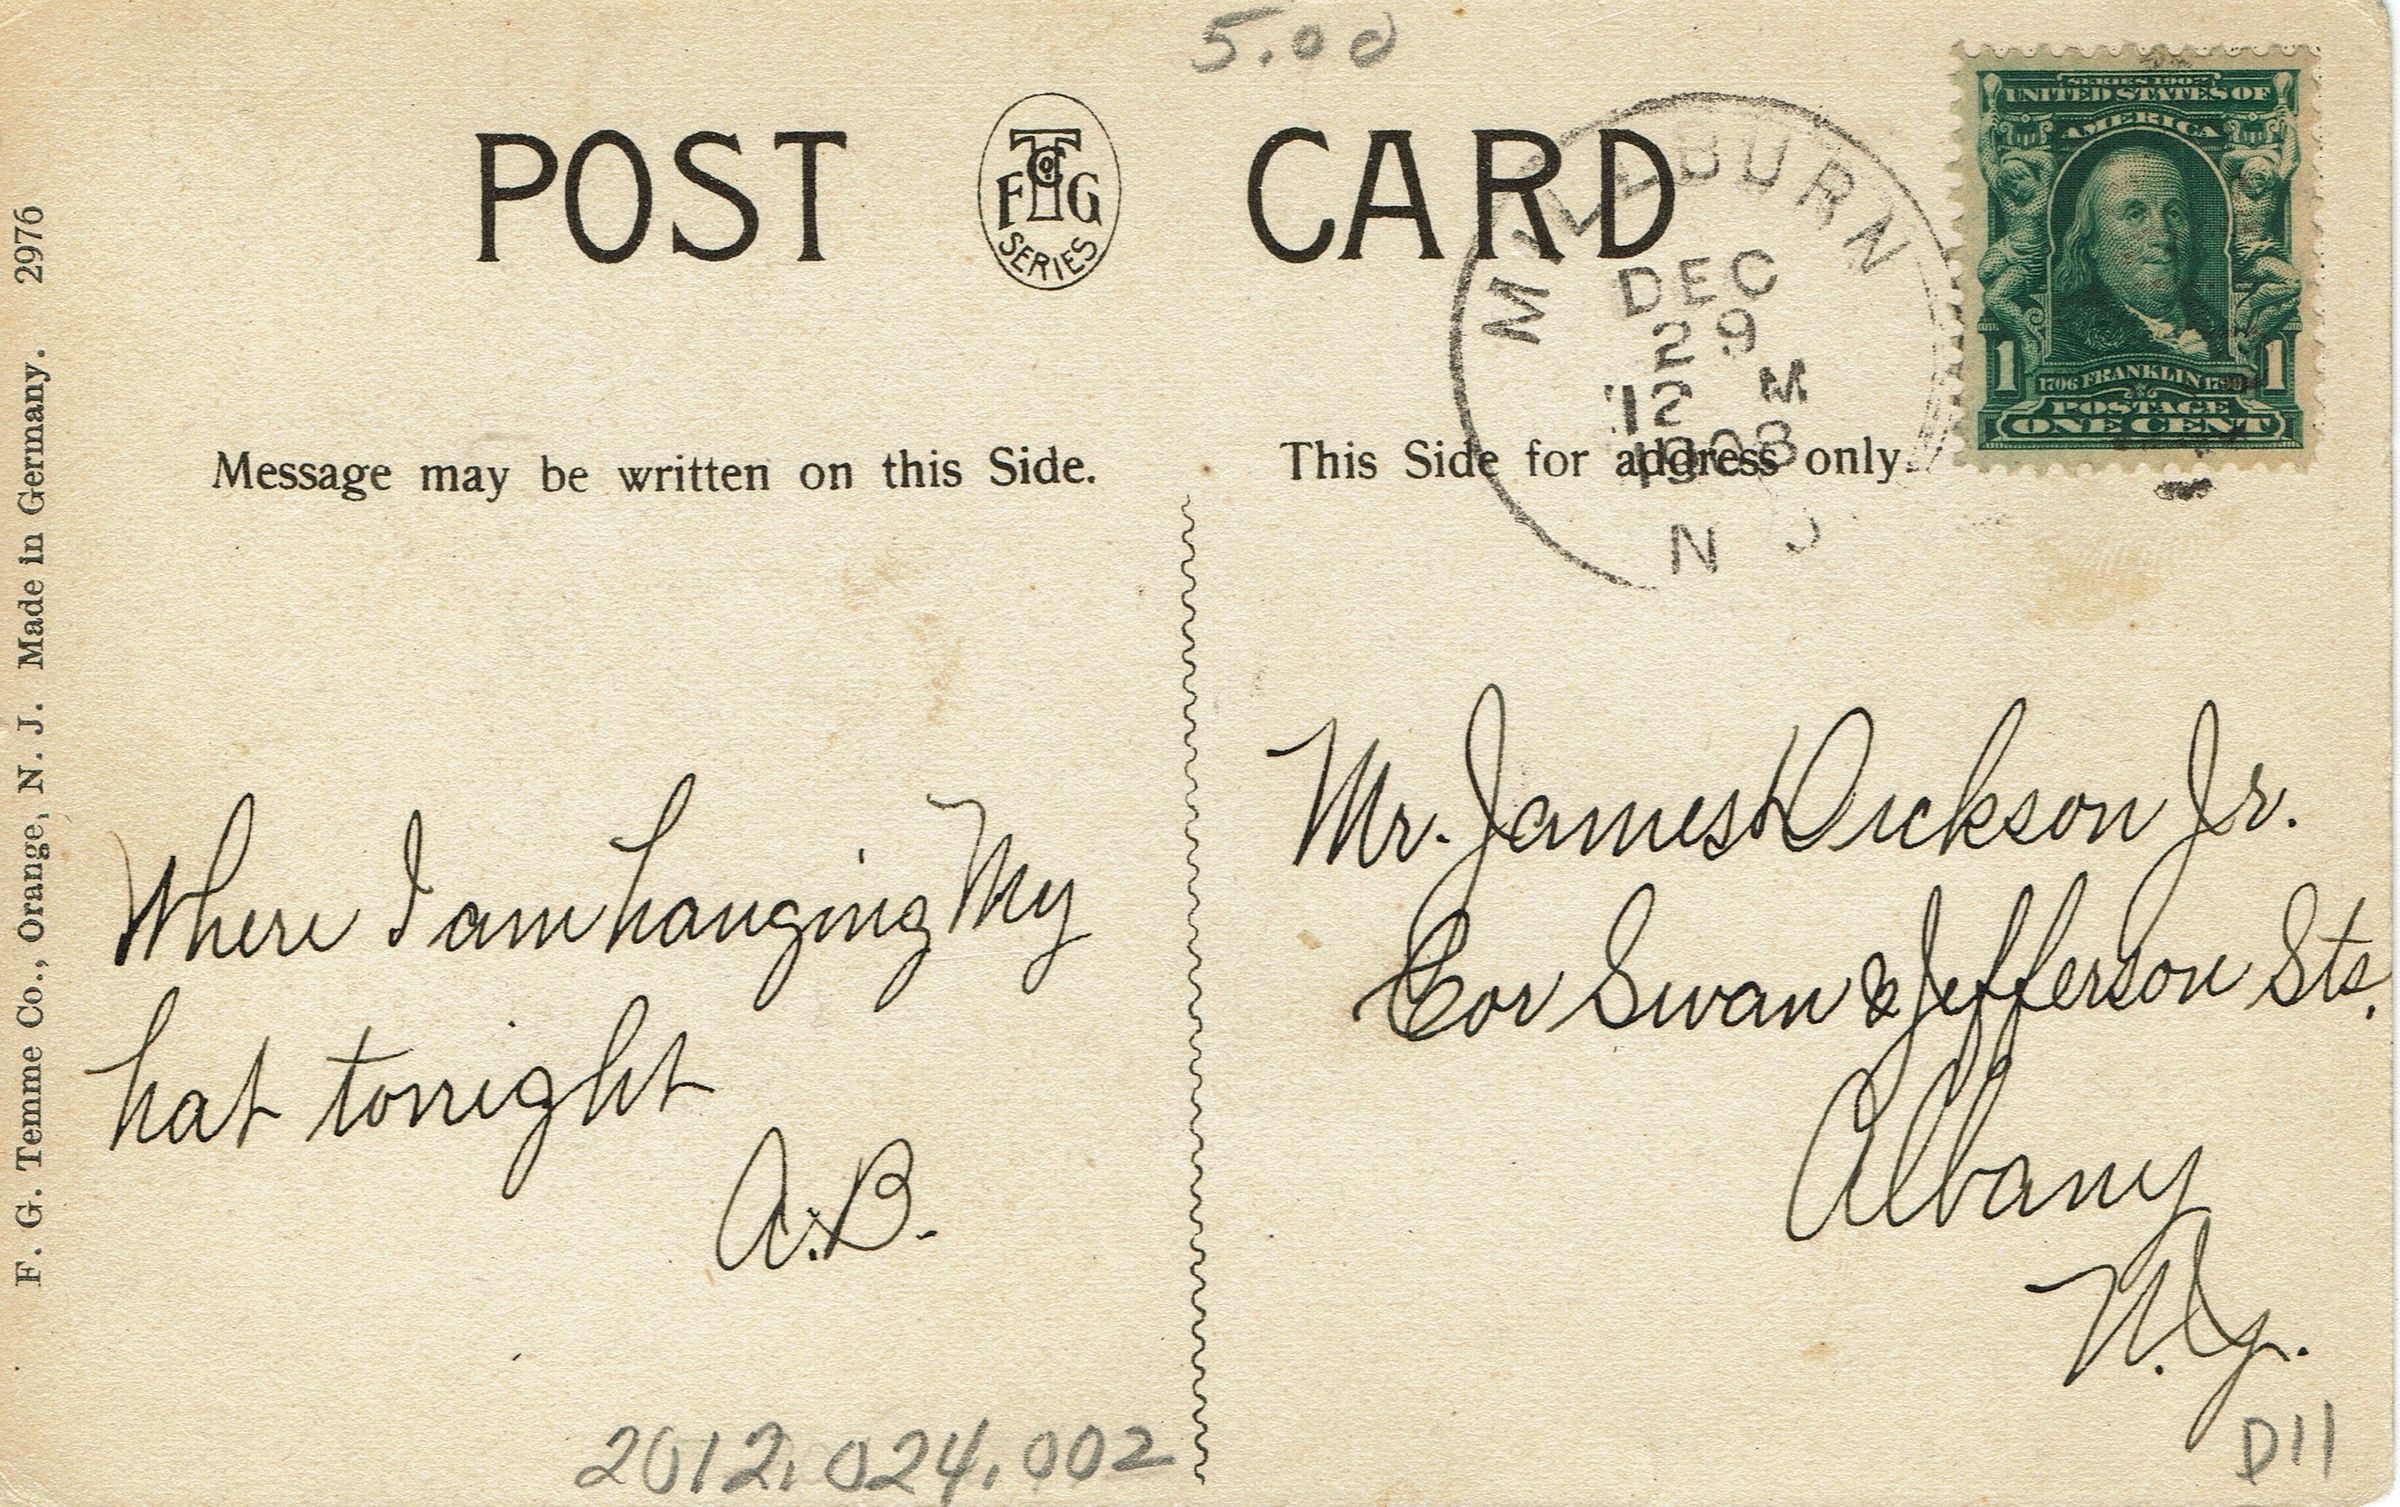 5.00
POST CARD
F T Co. G
SERIES
MILLBURN
DEC
29
12 M
1908
N J
SERIES 1902
UNITED STATES OF
AMERICA
1 1706 FRANKLIN 1790 1
POSTAGE
ONE CENT
Message may be written on this Side.
This Side for address only.
F. G. Temme Co., Orange, N. J. Made in Germany. 2976
Where I am hanging My
hat tonight
A.B.
Mr. James Dickson Jr.
Cor Swan & Jefferson Sts.
Albany
N.Y.
2012.024.002
D11